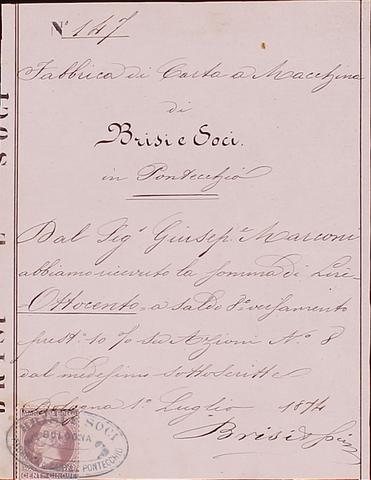 Nº 147
Fabbrica di Carta a Macchina
di
Brisi e Soci.
in Pontecchio
Dal Sigr Giusepe Marconi
abbiamo ricevuto la somma di Lire
Ottocento a saldo 8º versamento
10 % su Azioni Nº 8
dal medesimo sottoscritte
Bologna 1º Luglio 1874
Brisi e Soci
BRISI E SOCI
BOLOGNA
PONTECCHIO
CENT. CINQUE
BRISI E SOCI